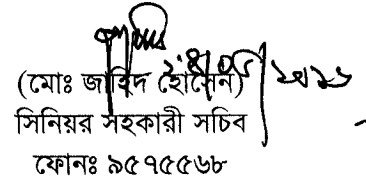 (মোঃ জাহিদ হোসেন)
সিনিয়র সহকারী সচিব
ফোনঃ ৯৫৭৫৫৬৮